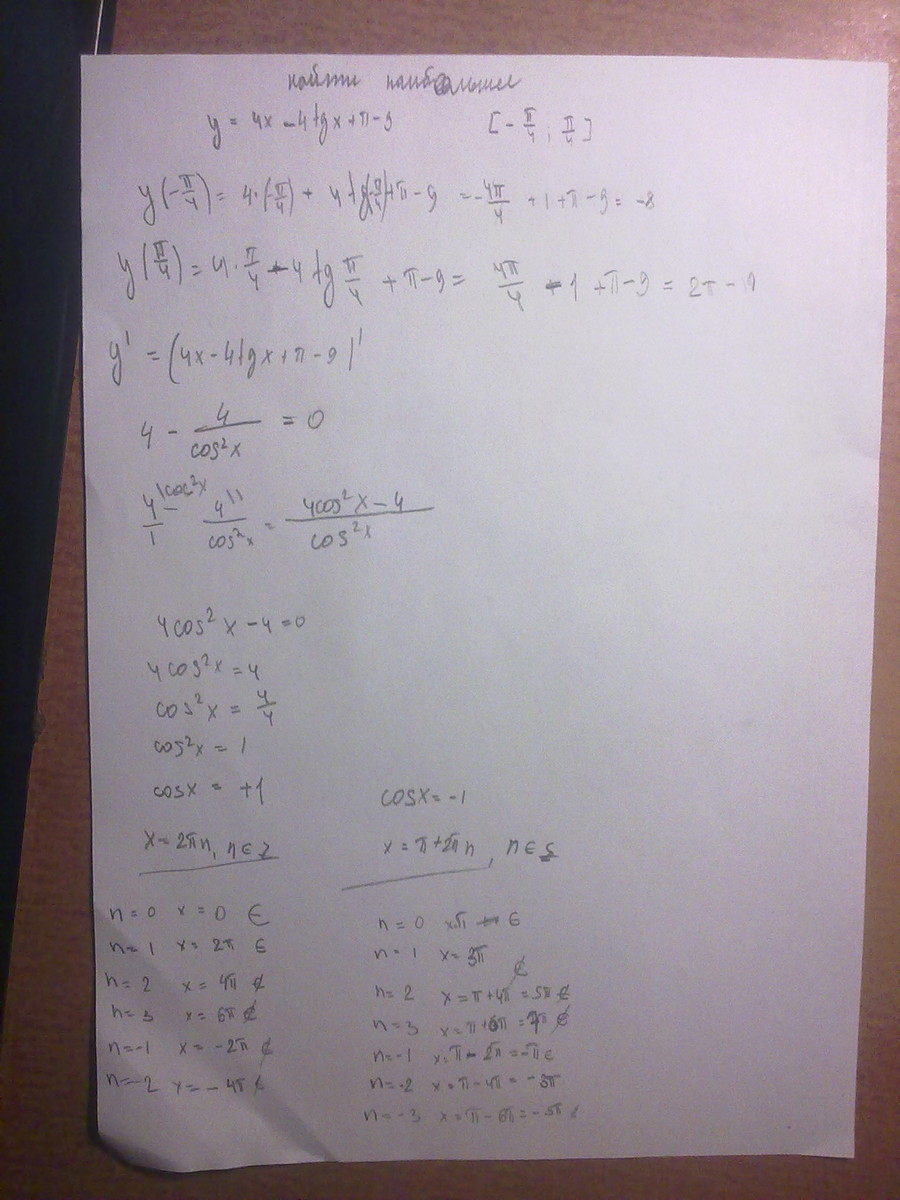 найти наибольшее
y = 4x - 4tgx + π - 9 [-π/4 ; π/4]
y(-π/4) = 4·(-π/4) + 4tg(-π/4) + π - 9 = -4π/4 + 1 + π - 9 = -8
y(π/4) = 4·π/4 - 4tg π/4 + π - 9 = 4π/4 - 1 + π - 9 = 2π -
y' = (4x - 4tgx + π - 9)'
4 - 4/cos²x = 0
4/1 \cos²x - 4\1/cos²x = (4cos²x - 4)/cos²x
4cos²x - 4 = 0
4cos²x = 4
cos²x = 4/4
cos²x = 1
cosx = +1 cosx = -1
x = 2πn, n ∈ Z x = π + 2πn, n ∈
n = 0 x = 0 ∈ n = 0 x=π ∈
n = 1 x = 2π ∈ n = 1 x = 3π ∉
n = 2 x = 4π ∉ n = 2 x = π + 4π = 5π ∉
n = 3 x = 6π ∉ n = 3 x = π + 6π = 7π ∉
n = -1 x = -2π ∉ n = -1 x = π - 2π = -π ∈
n = -2 x = -4π ∉ n = -2 x = π - 4π = -3π
n = -3 x = π - 6π = -5π ∉